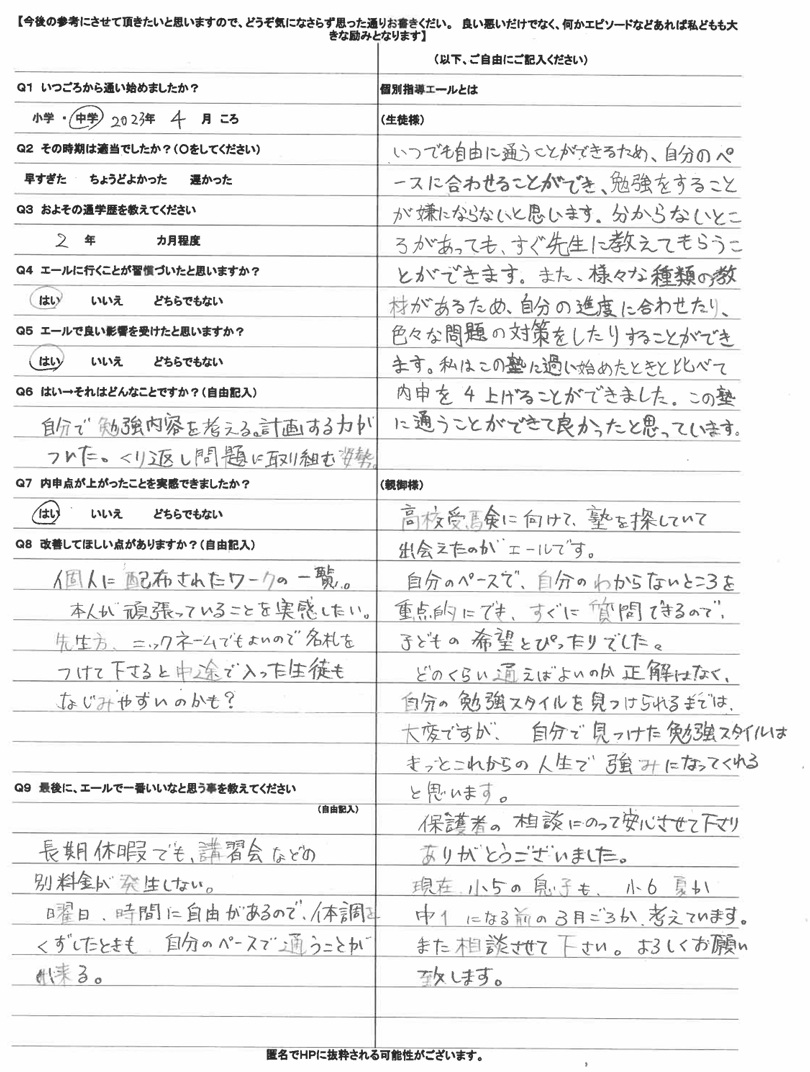 【今後の参考にさせて頂きたいと思いますので、どうぞ気になさらず思った通りお書きくだい。 良い悪いだけでなく、何かエピソードなどあれば私どもも大
きな励みとなります】
Q1 いつごろから通い始めましたか？
小学 ・ 中学 2023年 4 月 ころ
Q2 その時期は適当でしたか？（○をしてください）
早すぎた ちょうどよかった 遅かった
Q3 およその通学歴を教えてください
2 年 カ月程度
Q4 エールに行くことが習慣づいたと思いますか？
はい いいえ どちらでもない
Q5 エールで良い影響を受けたと思いますか？
はい いいえ どちらでもない
Q6 はい→それはどんなことですか？（自由記入）
自分で勉強内容を考える。計画する力が
ついた。くり返し問題に取り組む姿勢。
Q7 内申点が上がったことを実感できましたか？
はい いいえ どちらでもない
Q8 改善してほしい点がありますか？（自由記入）
個人に配布されたワークの一覧。
本人が頑張っていることを実感したい。
先生方、ニックネームでもよいので名札を
つけて下さると中途で入った生徒も
なじみやすいのかも？
Q9 最後に、エールで一番いいなと思う事を教えてください
（自由記入）
長期休暇でも、講習会などの
別料金が発生しない。
曜日、時間に自由があるので、体調を
くずしたときも 自分のペースで通うことが
出来る。
（以下、ご自由にご記入ください）
個別指導エールとは
（生徒様）
いつでも自由に通うことができるため、自分のペ
ースに合わせることができ、勉強をすること
が嫌にならないと思います。分からないとこ
ろがあっても、すぐ先生に教えてもらうこ
とができます。また、様々な種類の教
材があるため、自分の進度に合わせたり、
色々な問題の対策をしたりすることができ
ます。私はこの塾に通い始めたときと比べて
内申を4上げることができました。この塾
に通うことができて良かったと思っています。
（親御様）
高校受験に向けて、塾を探していて
出会えたのがエールです。
自分のペースで、自分のわからないところを
重点的にでき、すぐに質問できるので、
子どもの希望とぴったりでした。
どのくらい通えばよいのか正解はなく、
自分の勉強スタイルを見つけられるまでは、
大変ですが、 自分で見つけた勉強スタイルは
きっとこれからの人生で強みになってくれる
と思います。
保護者の相談にのって安心させて下さり
ありがとうございました。
現在小5の息子も、小6夏か
中1になる前の3月ごろか、考えています。
また相談させて下さい。よろしくお願い
致します。
匿名でHPに抜粋される可能性がございます。